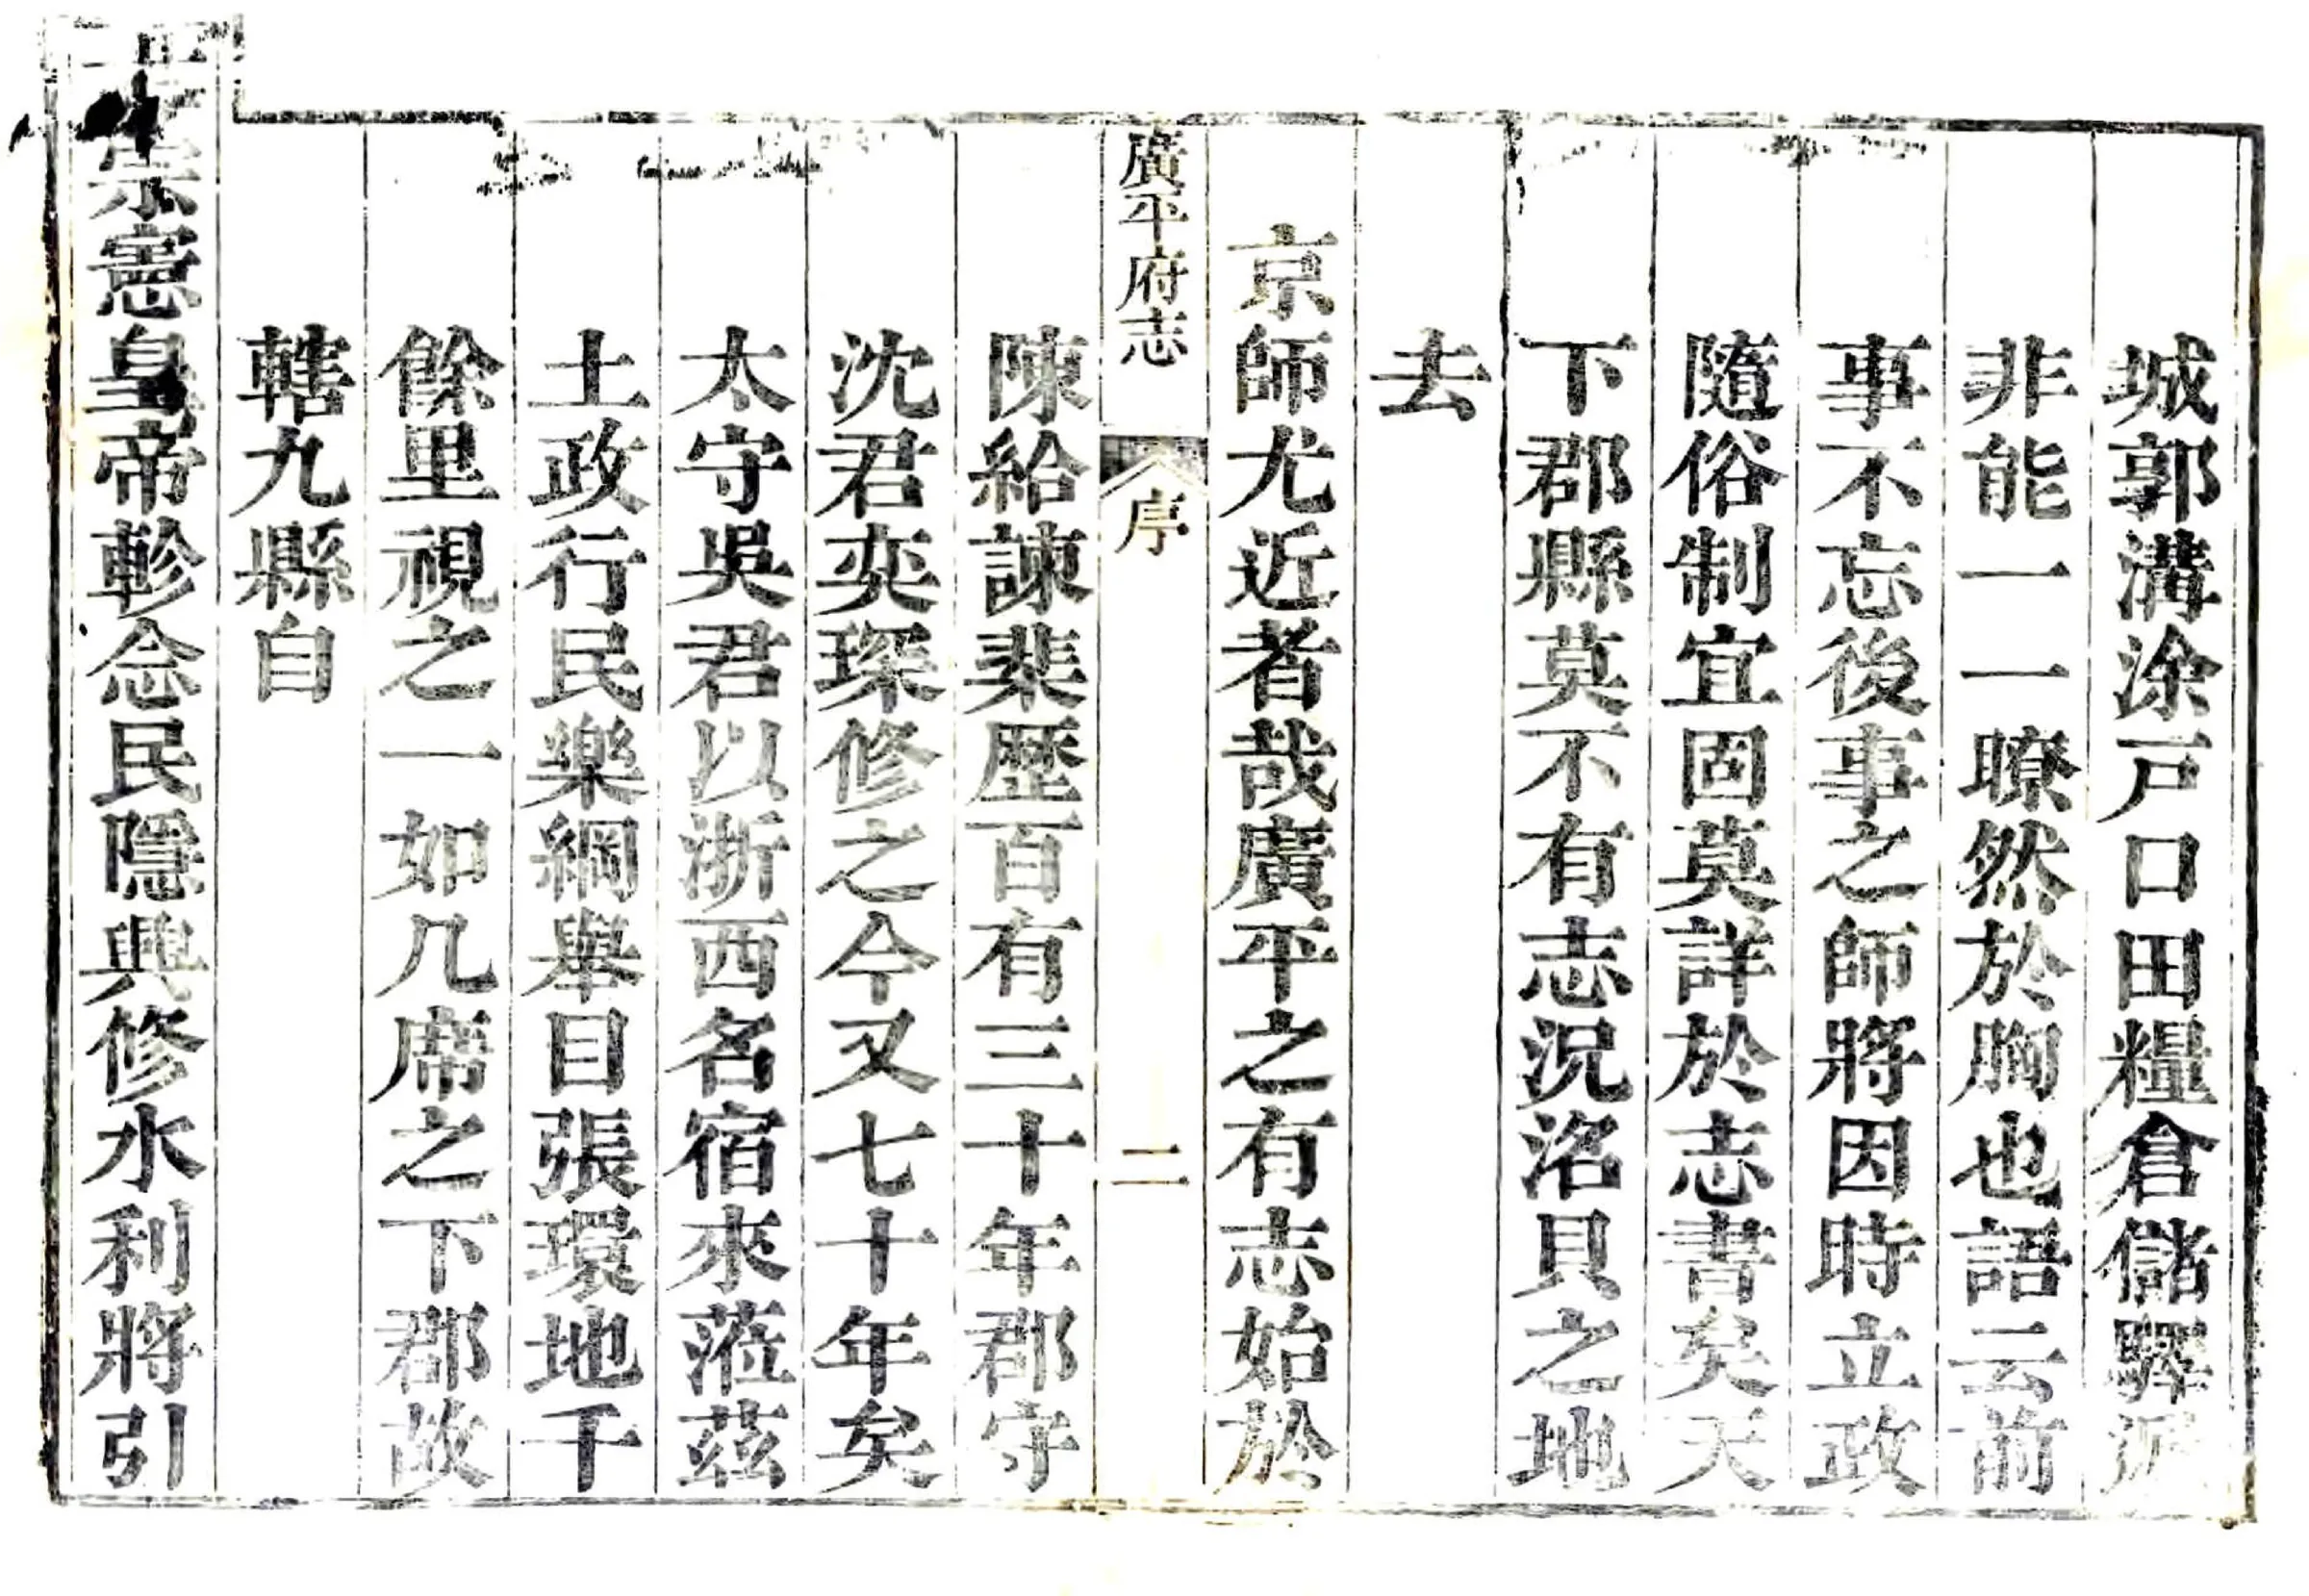 城郭溝涂戸口田糧倉儲驛遞
非能一一瞭然於胸也語云前
事不忘後事之師將因時立政
隨俗制宜固莫詳於志書矣天
下郡縣莫不有志況洺貝之地
去
京師尤近者哉廣平之有志始於
廣平府志 序 二
陳給諫棐歴百有三十年郡守
沈君奕琛修之今又七十年矣
太守吳君以浙西名宿來蒞茲
土政行民樂綱舉目張環地千
餘里視之一如几席之下郡故
轄九縣自
宗憲皇帝軫念民隱興修水利將引